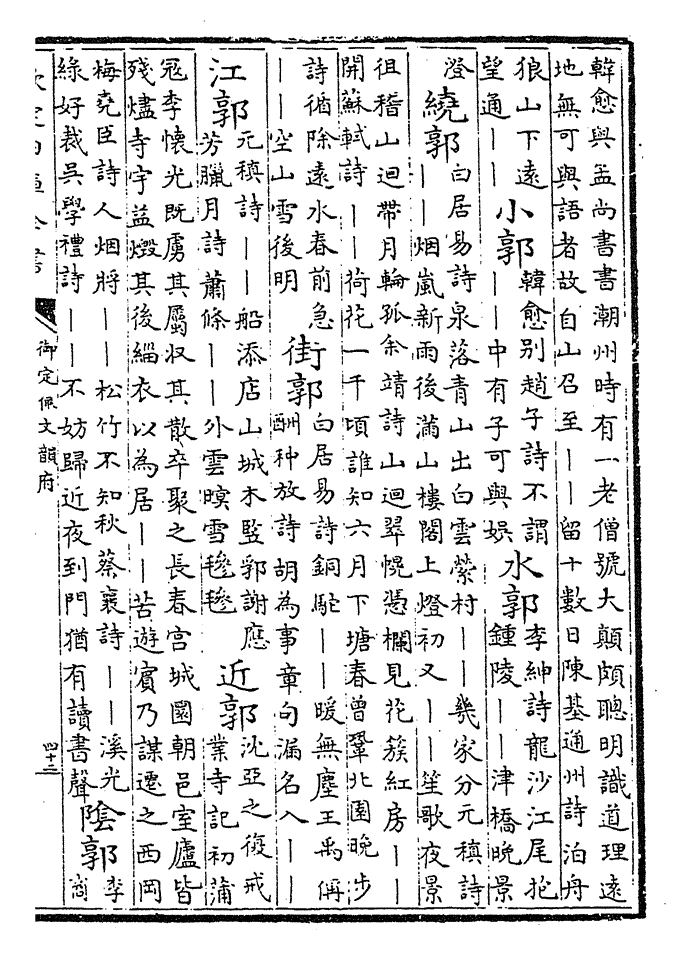 韓愈與孟尚書書潮州時有一老僧號大顛頗聰明識道理遠
地無可與語者故自山召至――留十數日陳基通州詩泊舟
狼山下遠
望通――
小郭
韓愈別趙子詩不謂
――中有子可與娛
水郭
李紳詩龍沙江尾抱
鍾陵――津橋晚景
澄
繞郭
白居易詩泉落青山出白雲縈村――幾家分元稹詩
――烟嵐新雨後滿山樓閣上燈初又――笙歌夜景
徂稽山迴帶月輪孤余靖詩山迴翠幌憑欄見花簇紅房――
開蘇軾詩――荷花一千頃誰知六月下塘春曾鞏北園晚步
詩循除遠水春前急
――空山雪後明
街郭
白居易詩銅駝――暖無塵王禹偁
酬种放詩胡為事章句漏名入――
江郭
元稹詩――船添店山城木豎郛謝應
芳臘月詩蕭條――外雲暝雪毿毿
近郭
沈亞之復戒
業寺記初蒲
冦李懷光既虜其屬収其散卒聚之長春宫城圜朝邑室廬皆
殘燼寺宇益燬其後緇衣以為居――苦遊賓乃謀遷之西岡
梅堯臣詩人烟將――松竹不知秋蔡襄詩――溪光
緑好裁吳學禮詩――不妨歸近夜到門猶有讀書聲
陰郭
李
商
欽定四庫全書
御定佩文韻府
四十二